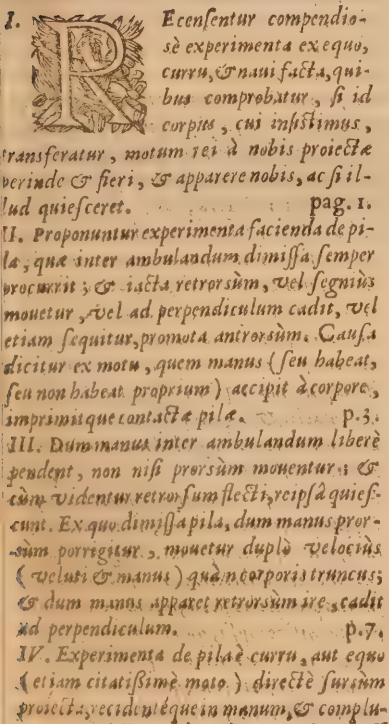 I. REcensentur compendio-
sè experimenta ex equo,
curru, & naui facta, qui-
bus comprobatur, si id
corpus, cui insistimus,
transferatur, motum rei à nobis proiectæ
perinde & fieri, & apparere nobis, ac si il-
lud quiesceret. pag. 1.
II. Proponuntur experimenta facienda de pi-
la, quæ inter ambulandum dimissa semper
procurrit; & iacta retrorsùm, vel segniùs
mouetur, vel ad perpendiculum cadit, vel
etiam sequitur, promota antrorsùm. Causa
dicitur ex motu, quem manus (seu habeat,
seu non habeat proprium) accipit à corpore,
imprimitque contactæ pilæ. p.3.
III. Dum manus inter ambulandum liberè
pendent, non nisi prorsùm mouentur; &
cùm videntur retrorsum flecti, reipsâ quies-
cunt. Ex quo dimissa pila, dum manus pror-
sùm porrigitur, mouetur duplò velociùs
(veluti & manus) quàm corporis truncus;
& dum manus apparet retrorsùm ire, cadit
ad perpendiculum. p.7.
IV. Experimenta de pila è curru, aut equo
(etiam citatißimè moto) directè sursùm
proiecta, recidentéque in manum, & complu-